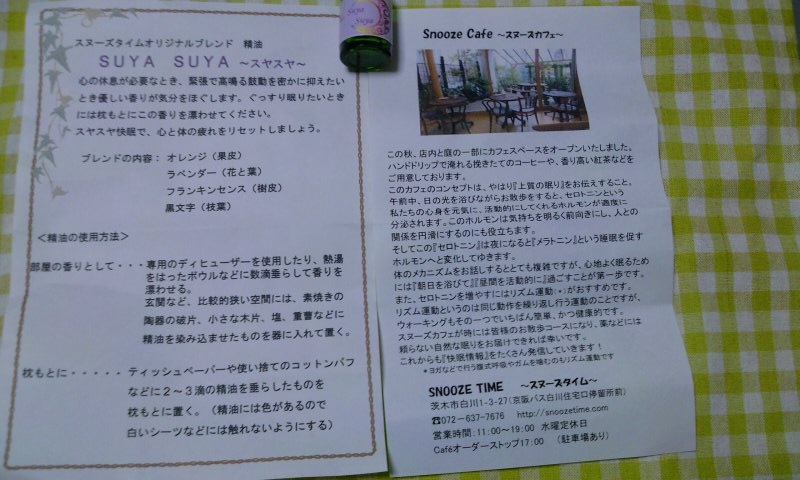 スヌーズタイムオリジナルブレンド 精油
SUYA SUYA ～スヤスヤ～
心の休息が必要なとき、緊張で高鳴る鼓動を密かに抑えたい
とき優しい香りが気分をほぐします。ぐっすり眠りたいとき
には枕もとにこの香りを漂わせてください。
スヤスヤ快眠で、心と体の疲れをリセットしましょう。
ブレンドの内容： オレンジ（果皮）
ラベンダー（花と葉）
フランキンセンス（樹皮）
黒文字（枝葉）
＜精油の使用方法＞
部屋の香りとして・・・専用のディヒューザーを使用したり、熱湯
をはったボウルなどに数滴垂らして香りを
漂わせる。
玄関など、比較的狭い空間には、素焼きの
陶器の破片、小さな木片、塩、重曹などに
精油を染み込ませたものを器に入れて置く。
枕もとに・・・・・ティッシュペーパーや使い捨てのコットンパフ
などに２～３滴の精油を垂らしたものを
枕もとに置く。（精油には色があるので
白いシーツなどには触れないようにする）
SUYA
SUYA
Snooze Cafe ～スヌーズカフェ～
この秋、店内と庭の一部にカフェスペースをオープンいたしました。
ハンドドリップで淹れる挽きたてのコーヒーや、香り高い紅茶などを
ご用意しております。
このカフェのコンセプトは、やはり『上質の眠り』をお伝えすること。
午前中、日の光を浴びながらお散歩をすると、セロトニンという
私たちの心身を元気に、活動的にしてくれるホルモンが適度に
分泌されます。このホルモンは気持ちを明るく前向きにし、人との
関係を円滑にするのにも役立ちます。
そしてこの『セロトニン』は夜になると『メラトニン』という睡眠を促す
ホルモンへと変化してゆきます。
体のメカニズムをお話しするととても複雑ですが、心地よく眠るため
には『朝日を浴びて』『昼間を活動的に』過ごすことが第一歩です。
また、セロトニンを増やすにはリズム運動（*）がおすすめです。
リズム運動というのは同じ動作を繰り返し行う運動のことですが、
ウォーキングもその一つでいちばん簡単、かつ健康的です。
スヌーズカフェが時には皆様のお散歩コースになり、薬などには
頼らない自然な眠りをお届けできれば幸いです。
これからも『快眠情報』をたくさん発信していきます！
*ヨガなどで行う腹式呼吸やガムを噛むのもリズム運動です
SNOOZE TIME ～スヌーズタイム～
茨木市白川1-3-27（京阪バス白川住宅口停留所前）
☎072-637-7676 http://snoozetime.com
営業時間：11：00～19：00 水曜定休日
Caféオーダーストップ17：00 （駐車場あり）